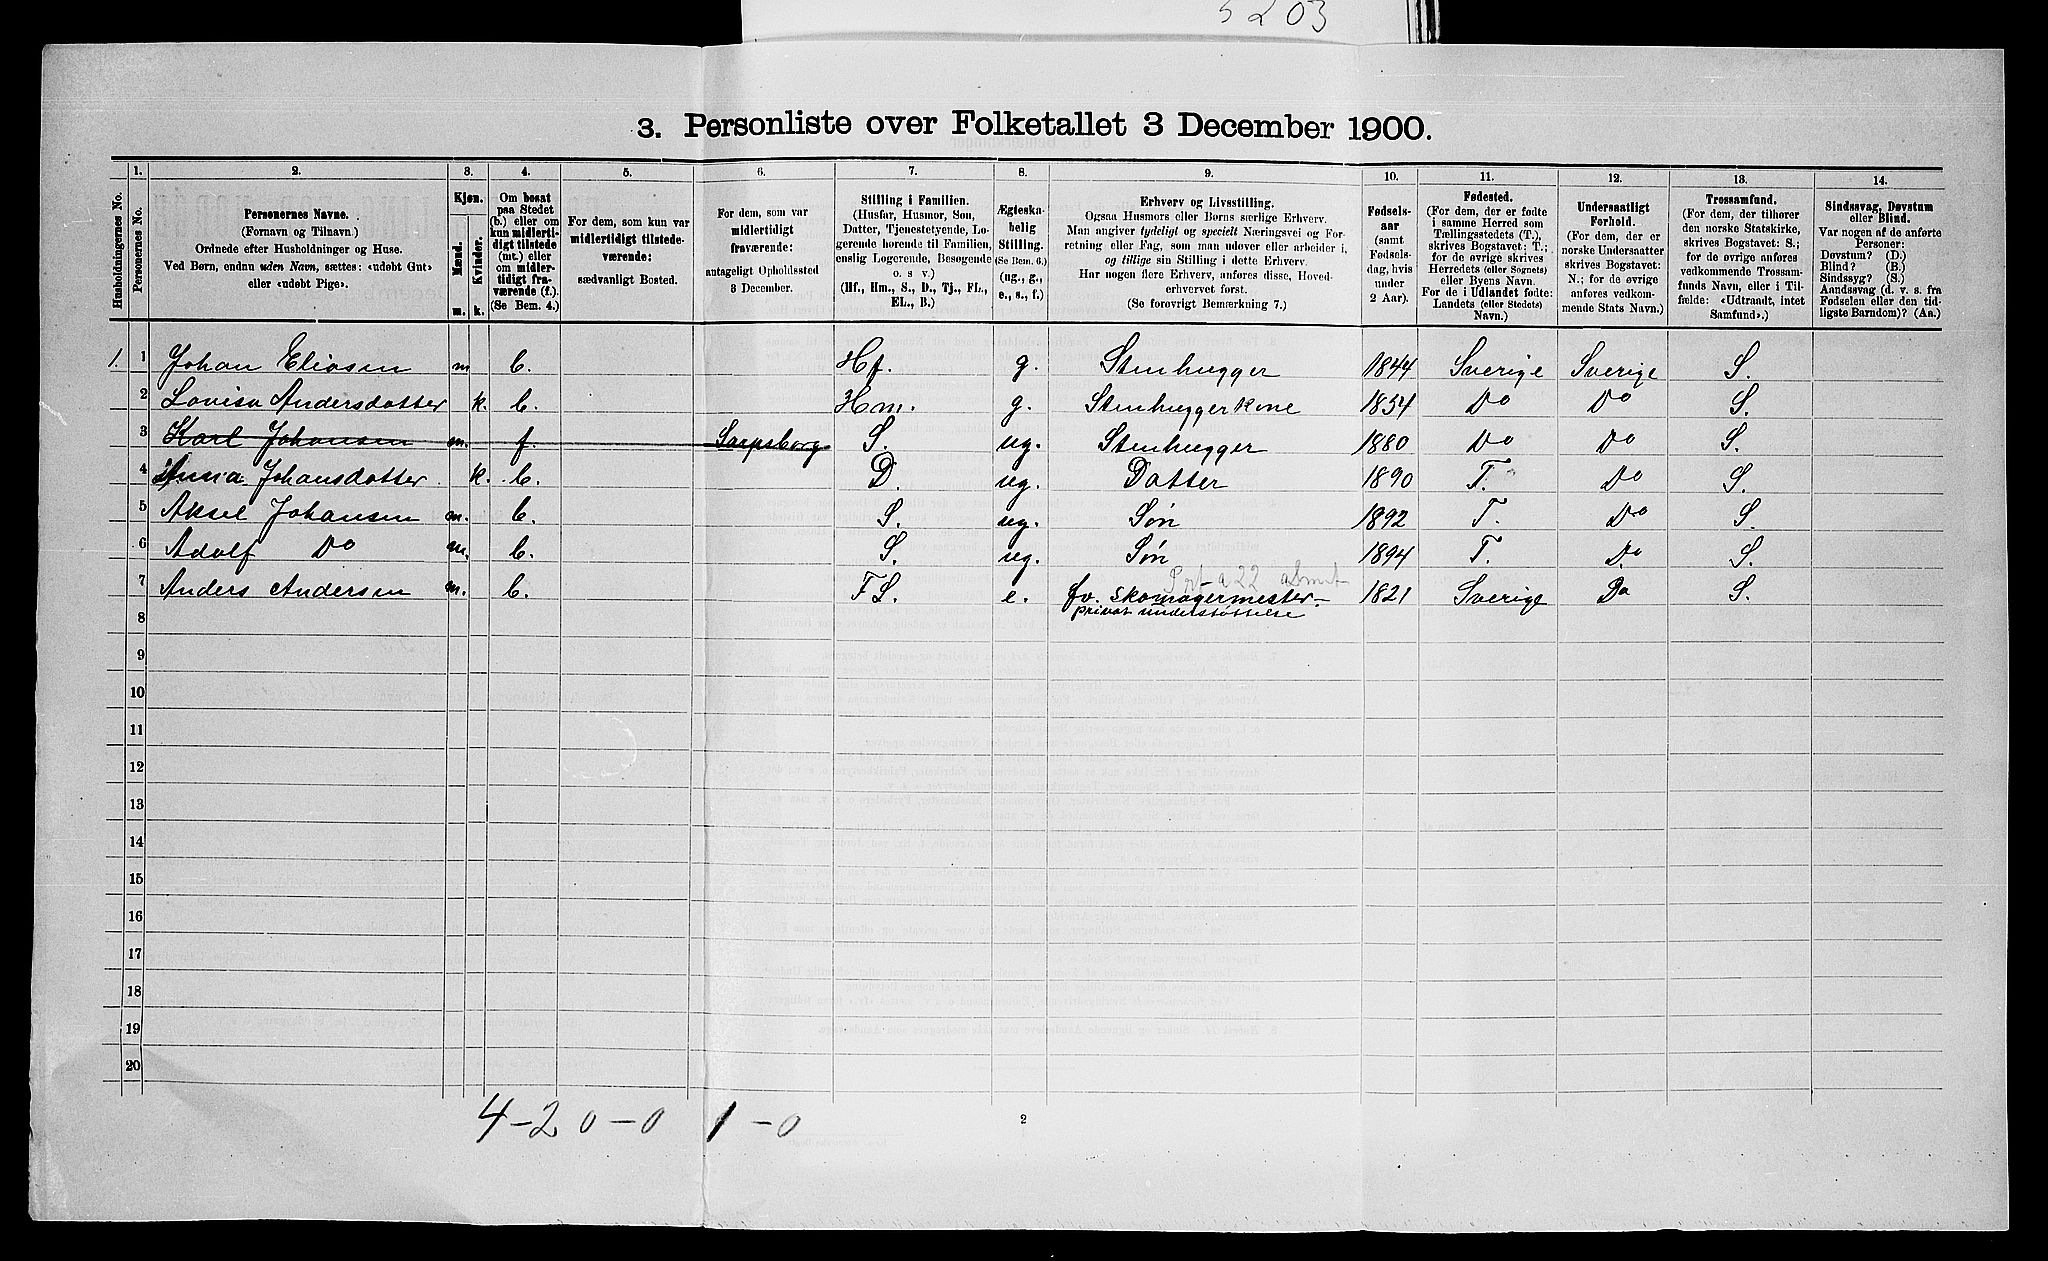 5203
3. Personliste over Folketallet 3 December 1900.
Husholdningernes No.
1.
Personernes No.
2.
Personernes Navne.
(Fornavn og Tilnavn.)
Ordnede efter Husholdninger og Huse.
Ved Børn, endnu uden Navn, sættes: «udøbt Gut»
eller «udøbt Pige».
3.
Kjøn.
Mænd.
Kvinder.
m. k.
4.
Om bosat
paa Stedet
(b.) eller om
kun midlerti-
digt tilstede
(mt.) eller
om midler-
tidigt fra-
værende (f.).
(Se Bem. 4.)
5.
For dem, som kun var
midlertidigt tilstede-
værende:
sædvanligt Bosted.
6.
For dem, som var
midlertidigt
fraværende:
antageligt Opholdssted
3 December.
7.
Stilling i Familien.
(Husfar, Husmor, Søn,
Datter, Tjenestetyende, Lo-
gerende hørende til Familien,
enslig Logerende, Besøgende
o. s v.)
(Hf., Hm., S., D., Tj., FL.,
EL., B.)
8.
Ægteska-
belig
Stilling.
(Se Bem. 6.)
(ug., g.,
e., s., f.)
9.
Erhverv og Livsstilling.
Ogsaa Husmors eller Børns særlige Erhverv.
Man angiver tydeligt og specielt Næringsvei og For-
retning eller Fag, som man udøver eller arbeider i,
og tillige sin Stilling i dette Erhverv.
Har nogen flere Erhverv, anføres disse, Hoved-
erhvervet først.
(Se forøvrigt Bemærkning 7.)
10.
Fødsels-
aar
(samt
Fødsels-
dag, hvis
under
2 Aar).
11.
Fødested.
(For dem, der er fødte
i samme Herred som
Tællingsstedets (T.),
skrives Bogstavet: T.;
for de øvrige skrives
Herredets (eller Sognets)
eller Byens Navn.
For de i Udlandet fødte:
Landets (eller Stedets)
Navn.)
12.
Undersaatligt
Forhold.
(For dem, der er
norske Undersaatter
skrives Bogstavet:
N.; for de øvrige
anføres vedkom-
mende Stats Navn.)
13.
Trossamfund.
(For dem, der tilhører
den norske Statskirke,
skrives Bogstavet: S.;
for de øvrige anføres
vedkommende Trossam-
funds Navn, eller i Til-
fælde: «Udtraadt, intet
Samfund».)
14.
Sindssvag, Døvstum
eller Blind.
Var nogen af de anførte
Personer:
Døvstum? (D.)
Blind? (B.)
Sindssyg? (S.)
Aandssvag (d. v. s. fra
Fødselen eller den tid-
ligste Barndom)? (Aa.)
1. 1 Johan Eliasen m b. Hf. g. Stenhugger 1844 Sverige Sverige S.
2 Lovisa Andersdatter k. b. Hm. g. Stenhuggerkone 1854 Do Do S.
3 Karl Johansen m. f. Sarpsborg S. ug. Stenhugger 1880 Do Do S.
4 Anna Johansdatter k. b. D. ug. Datter 1890 T. Do S.
5 Aksel Johansen m. b. S. ug. Søn 1892 T. Do S.
6 Adolf Do m. b. S. ug. Søn 1894 T. Do S.
7 Anders Andersen m. b. FL. e. fv. Skomagermester- 1821 Sverige Do S.
privat understøttelse
8
9
10
11
12
13
14
15
16
17
18
19
20
4-2 0-0 1-0
2